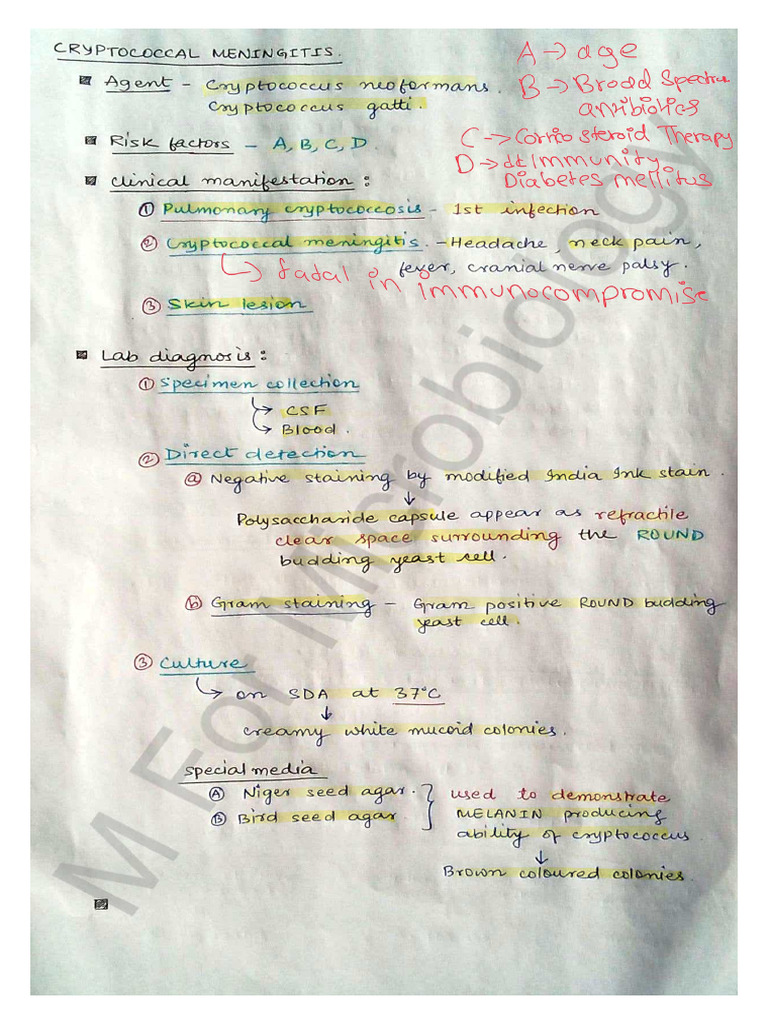 CRYPTOCOCCAL MENINGITIS.
A → age
Agent - Cryptococcus neoformans.
B → Broad Spectra
Cryptococcus gatti.
antibiotics
C → Cortico steroid Therapy
Risk factors - A, B, C, D
D → ↓t Immunity
Diabetes mellitus
Clinical manifestation :
① Pulmonary cryptococcosis - 1st infection
② Cryptococcal meningitis. - Headache, neck pain,
fever, cranial nerve palsy.
↳ fatal in Immunocompromise
③ Skin lesion
Lab diagnosis :
① Specimen collection
→ CSF
→ Blood.
② Direct detection
ⓐ Negative staining by modified India Ink stain.
↓
Polysaccharide capsule appear as refractile
clear space surrounding the ROUND
budding yeast cell.
ⓑ Gram staining - Gram positive ROUND budding
yeast cell.
③ Culture
↳ on SDA at 37°C
↓
creamy white mucoid colonies.
special media
Ⓐ Niger seed agar. } used to demonstrate
Ⓑ Bird seed agar. MELANIN producing
ability of cryptococcus
↓
Brown coloured colonies.
M For Microbiology